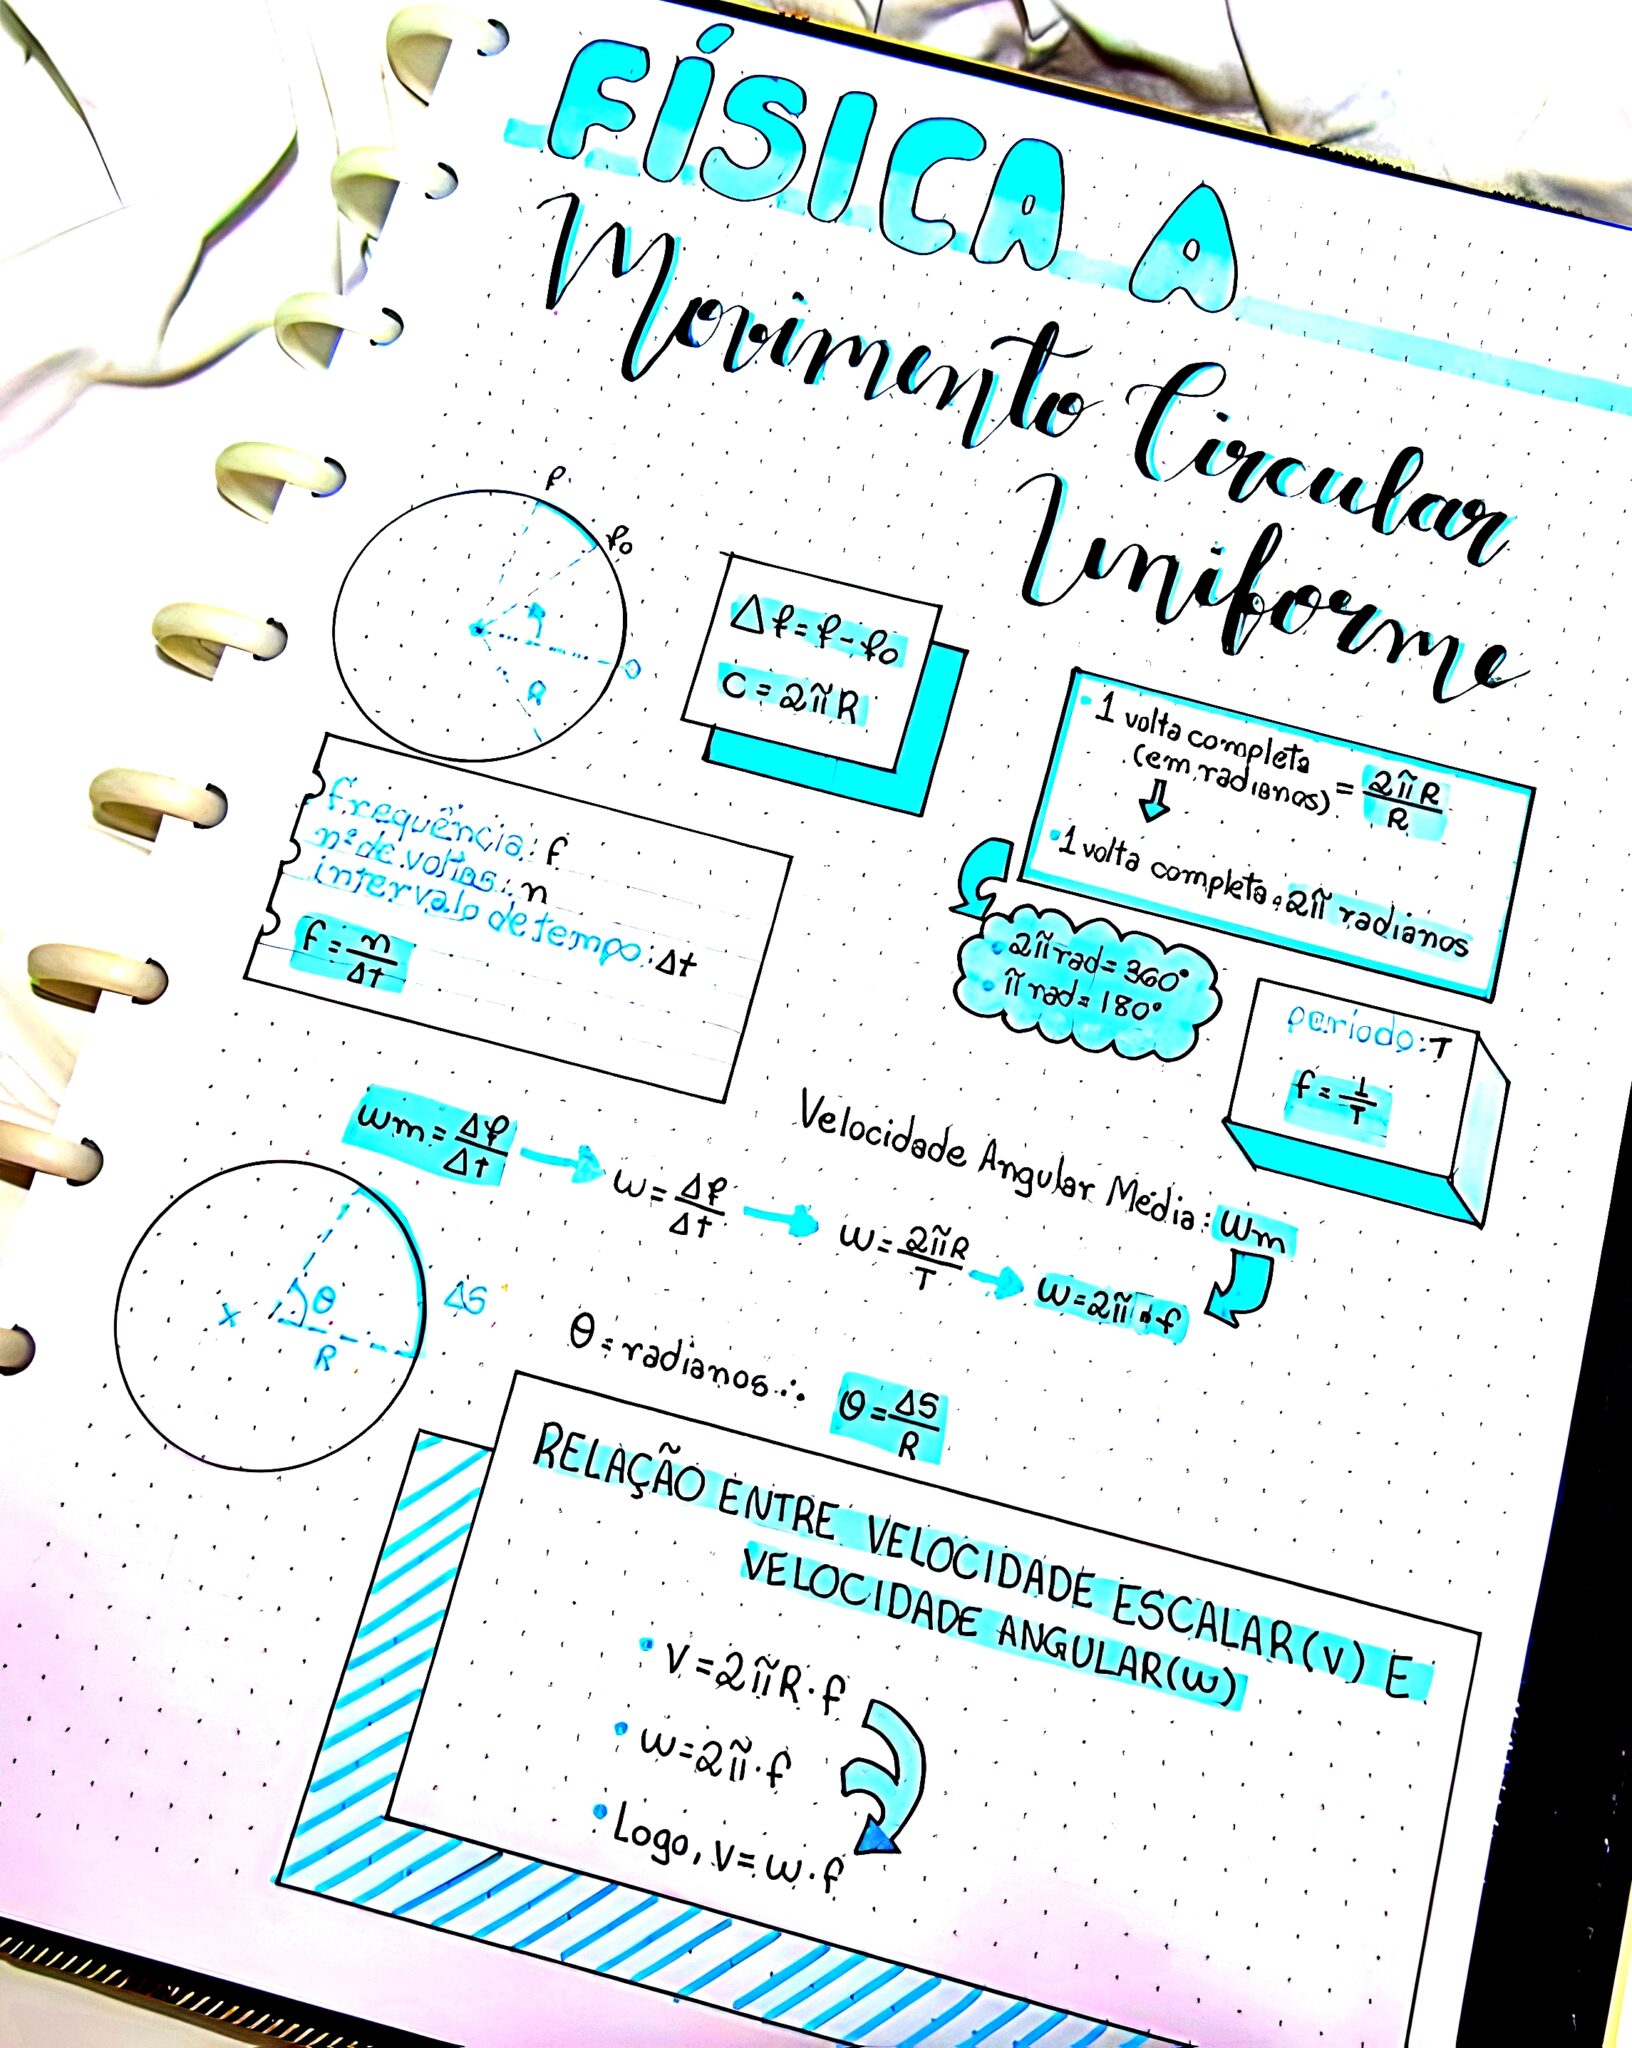 FÍSICA A
Movimento Circular
Uniforme
φ
φ0
0
R
Δφ = φ - φ0
C = 2πR
• 1 volta completa
(em radianos) = 2πR/R
• 1 volta completa: 2π radianos
• 2π rad = 360°
• π rad = 180°
frequência: f
nº de voltas: n
intervalo de tempo: Δt
f = n/Δt
período: T
f = 1/T
Velocidade Angular Média: wm
wm = Δφ/Δt
w = Δφ/Δt
w = 2πR/T
w = 2π · f
x
θ
R
ΔS
θ = radianos ∴ θ = ΔS/R
RELAÇÃO ENTRE VELOCIDADE ESCALAR (V) E
VELOCIDADE ANGULAR (w)
• V = 2πR · f
• w = 2π · f
• Logo, V = w · f